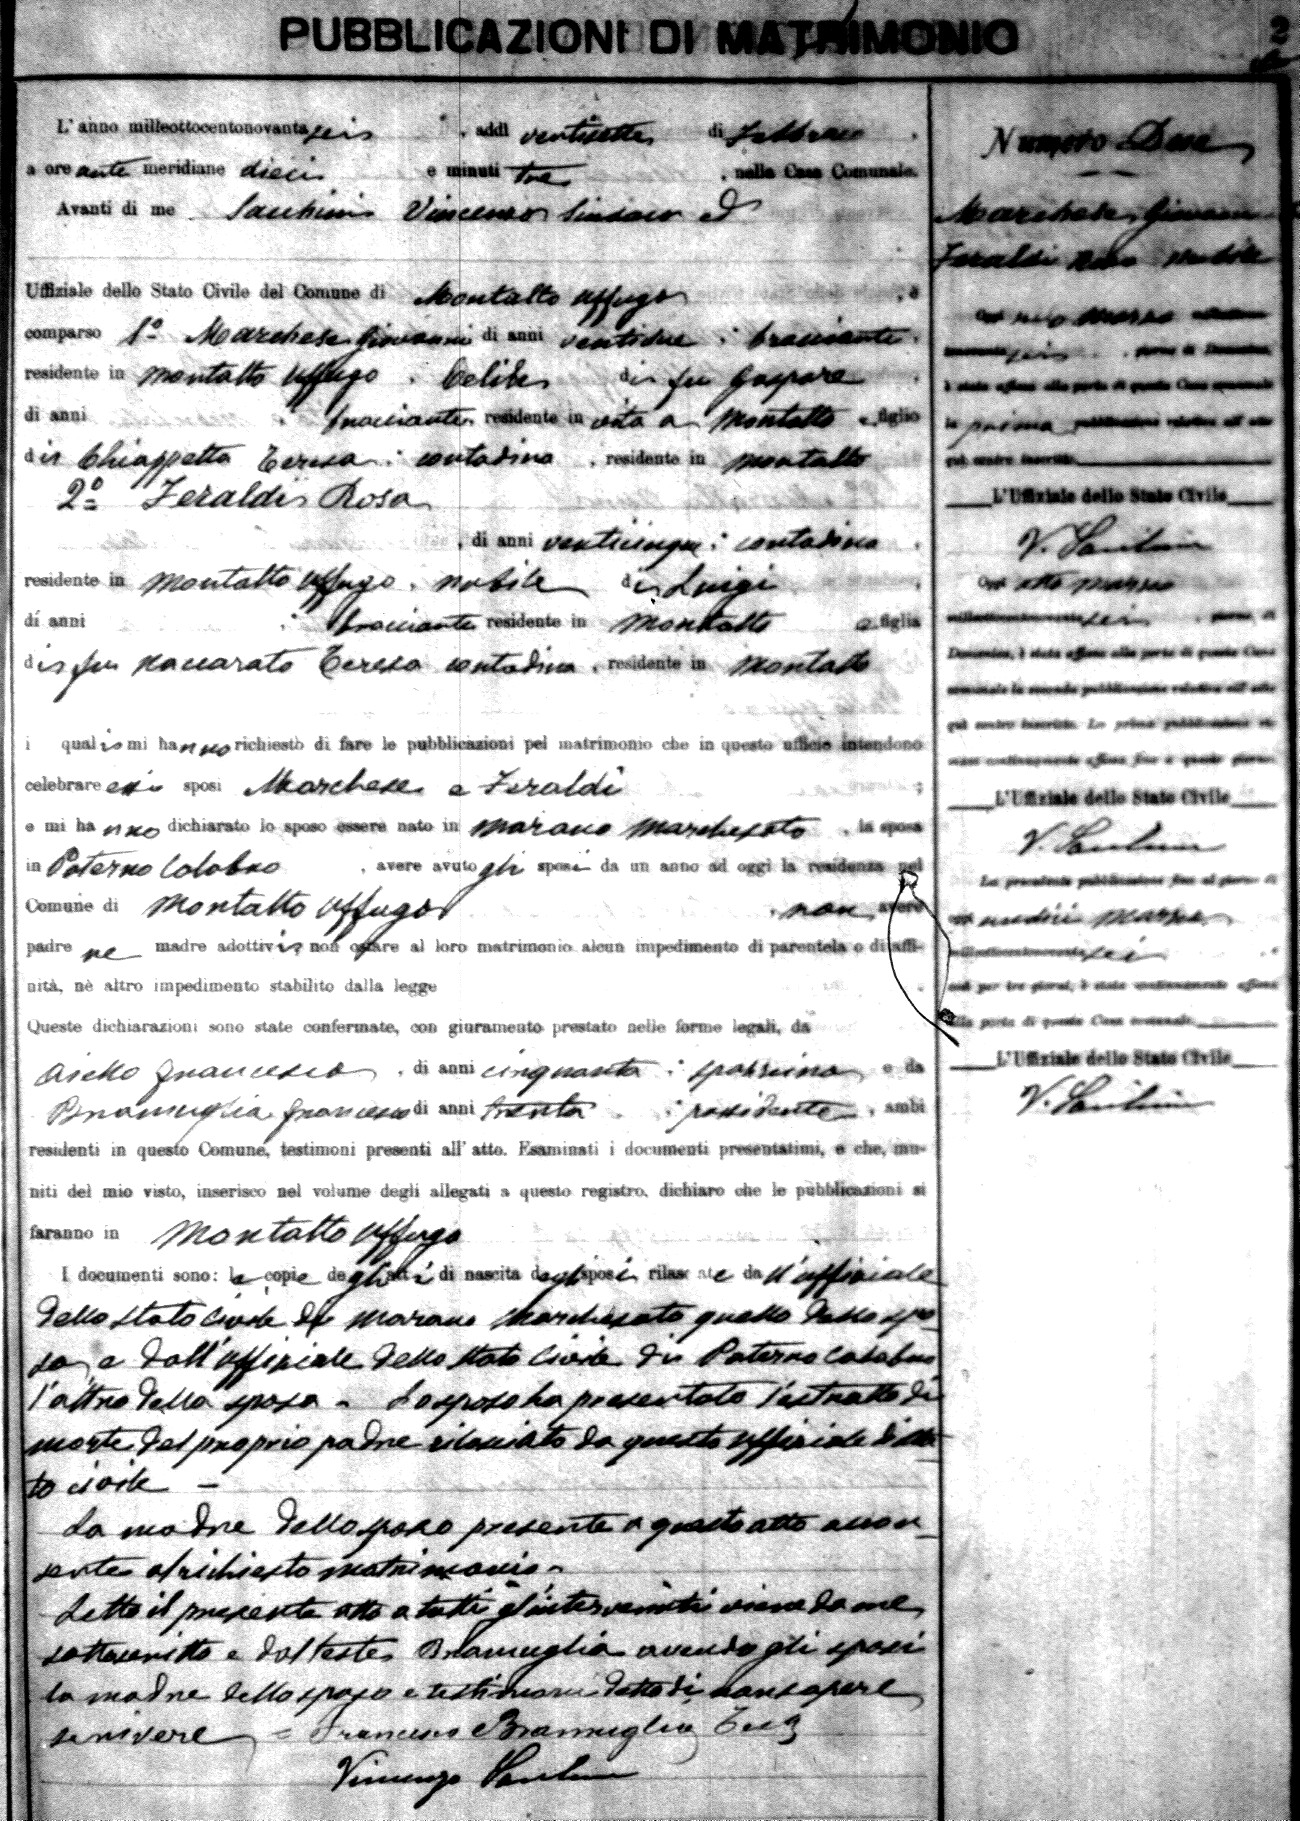 PUBBLICAZIONI DI MATRIMONIO
2
L'anno milleottocentonovantasei , addì ventisette di Febbraio
a ore ante meridiane dieci e minuti tre , nella Casa Comunale.
Avanti di me Vincenzo Sindaco
Uffiziale dello Stato Civile del Comune di Montalto Uffugo , è
comparso 1º Marchese Giovanni di anni ventidue : bracciante
residente in Montalto Uffugo . Celibe di fu Gaspare
di anni bracciante residente in vita a Montalto e figlio
di Chiappetta Teresa : contadina , residente in Montalto
2º Feraldi Rosa
, di anni venticinque : contadina
residente in Montalto Uffugo . nubile di Luigi
di anni : bracciante residente in Montalto e figlia
di fu Naccarato Teresa contadina , residente in Montalto
i quali mi hanno richiesto di fare le pubblicazioni pel matrimonio che in questo ufficio intendono
celebrare essi sposi Marchese e Feraldi
e mi hanno dichiarato lo sposo essere nato in Marano Marchesato , la sposa
in Paterno Calabro , avere avuto gli sposi da un anno ad oggi la residenza nel
Comune di Montalto Uffugo , non avere
padre ne madre adottivi, non ostare al loro matrimonio alcun impedimento di parentela o di affi-
nità, nè altro impedimento stabilito dalla legge
Queste dichiarazioni sono state confermate, con giuramento prestato nelle forme legali, da
Aiello Francesco , di anni cinquanta : spazzino e da
Bramuglia Francesco di anni trenta : possidente , ambi
residenti in questo Comune, testimoni presenti all'atto. Esaminati i documenti presentatimi, e che, mu-
niti del mio visto, inserisco nel volume degli allegati a questo registro, dichiaro che le pubblicazioni si
faranno in Montalto Uffugo
I documenti sono: le copie degli atti di nascita degli sposi rilasciate da l'uffiziale
dello stato civile di Marano Marchesato quello dello spo-
so, e dall'uffiziale dello stato civile di Paterno Calabro
l'altro della sposa - Lo sposo ha presentato l'estratto di
morte del proprio padre rilasciato da questo uffiziale di sta-
to civile -
La madre dello sposo presente a questo atto accon-
sente al richiesto matrimonio -
Letto il presente atto a tutti gl'intervenuti viene da me
sottoscritto e dal teste Bramuglia avendo gli sposi
la madre dello sposo e testimone detto di non sapere
scrivere - Francesco Bramuglia Teste
Vincenzo
Numero Due
Marchese Giovanni
Feraldi Rosa nubile
Oggi uno Marzo milleotto-
centonovantasei , giorno di Domenica,
è stata affissa alla porta di questa Casa comunale
la prima pubblicazione relativa all'atto
qui contro inscritto
L'Uffiziale dello Stato Civile
V.
Oggi otto Marzo
milleottocentonovantasei , giorno di
Domenica, è stata affissa alla porta di questa Casa
comunale la seconda pubblicazione relativa all'atto
qui contro inscritto. La prima pubblicazione ri-
mase continuamente affissa fino a questo giorno.
L'Uffiziale dello Stato Civile
V.
La precedente pubblicazione fino al giorno di
oggi undici Marzo
milleottocentonovantasei
cioè per tre giorni, è stata continuamente affissa
alla porta di questa Casa comunale.
L'Uffiziale dello Stato Civile
V.